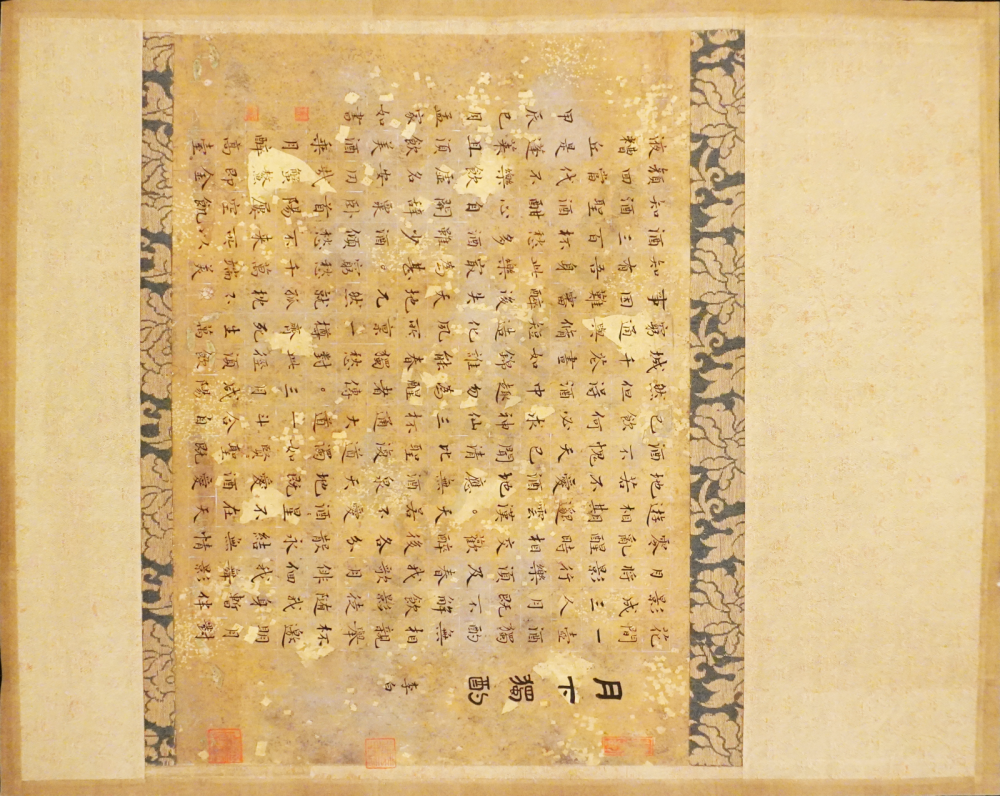 月下獨酌
李白
花間一壺酒獨酌無相親舉杯邀明月對
影成三人月既不解飲影徒隨我身暫伴
月將影行樂須及春我歌月俳徊我舞影
零亂醒時相交歡醉後各分散永結無情
遊相期邈雲漢。天若不愛酒星不在天
地若不愛酒地應無酒泉天地既愛酒愛
酒不愧天已聞清比聖復道濁如賢聖既
已飲何必求神仙三杯通大道一斗合自
然但得酒中趣勿為醒者傳。三月咸陽
城千花晝如錦誰能春獨愁對此徑須飲
窮通與修短造化風所稟一樽齊死生萬
事因難審醉後失天地兀然就孤枕不
知有吾身此樂最為甚。窮愁千萬端美
酒三百杯愁多酒雖少酒傾愁不來所以
知酒聖酒酣心自開辭粟臥首陽屢空飢
顏回當代不樂飲虛名安用哉蟹螯即金
液糟丘是蓬萊且須飲美酒乘月醉高臺
甲辰巳月孟家如書